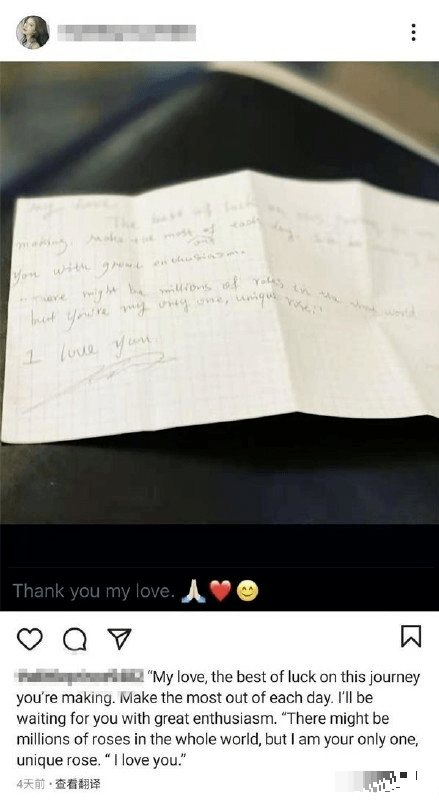 My love
The best of luck on
making make the most of each day.
out
you with great enthusiasm.
"There might be millions of roses in the world
but you're my only one, unique rose."
I love you.
Thank you my love. 🙏🏻❤️😊
"My love, the best of luck on this journey
you're making. Make the most out of each day. I'll be
waiting for you with great enthusiasm. "There might be
millions of roses in the whole world, but I am your only one,
unique rose. " I love you."
4天前 · 查看翻译